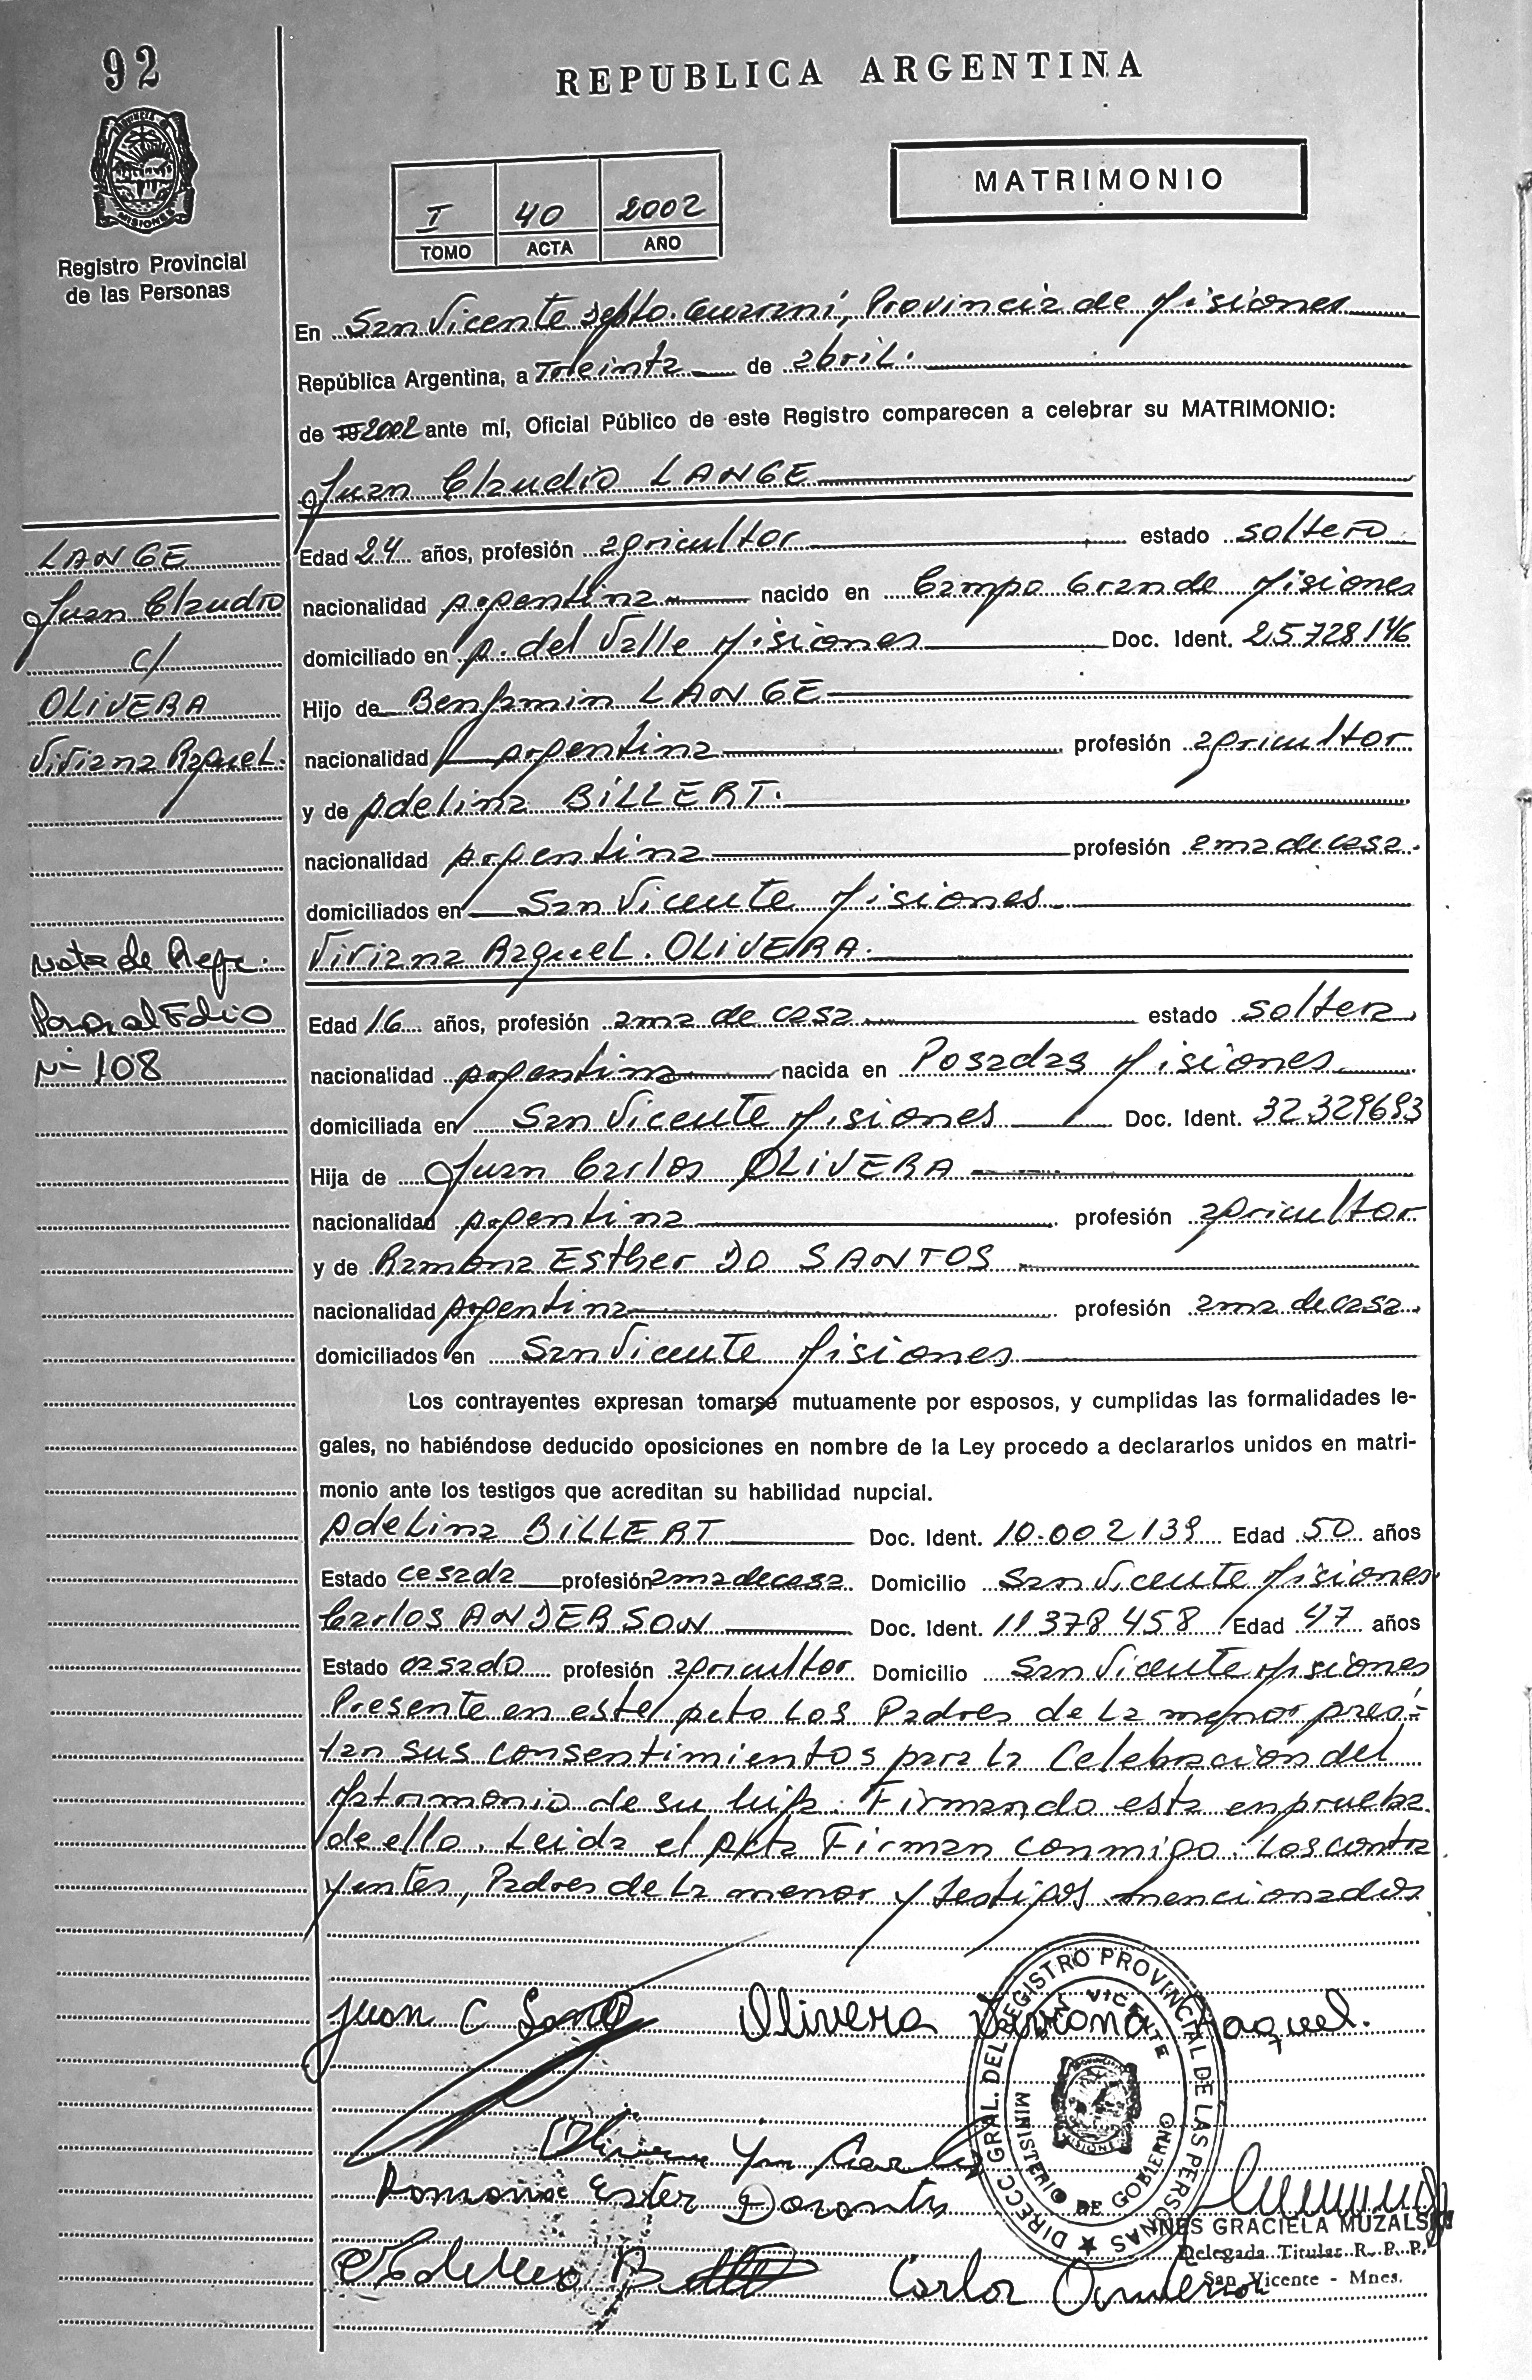 92
REPUBLICA ARGENTINA
MISIONES
Registro Provincial
de las Personas
MATRIMONIO
I 40 2002
TOMO ACTA AÑO
En San Vicente Depto. Guaraní, Provincia de Misiones
República Argentina, a Treinta de abril.
de 2002 ante mí, Oficial Público de este Registro comparecen a celebrar su MATRIMONIO:
Juan Claudio LANGE
Edad 24 años, profesión agricultor estado soltero
nacionalidad argentina nacido en Campo Grande Misiones
domiciliado en A. del Valle Misiones Doc. Ident. 25.728.146
Hijo de Benjamin LANGE
nacionalidad argentina profesión agricultor
y de Adelina BILLERT.
nacionalidad argentina profesión ama de casa.
domiciliados en San Vicente Misiones
Viviana Raquel. OLIVERA.
Edad 16 años, profesión ama de casa estado soltera
nacionalidad argentina nacida en Posadas Misiones
domiciliada en San Vicente Misiones Doc. Ident. 32.329683
Hija de Juan Carlos OLIVERA
nacionalidad argentina profesión agricultor
y de Ramona Esther DO SANTOS
nacionalidad argentina profesión ama de casa.
domiciliados en San Vicente Misiones
Los contrayentes expresan tomarse mutuamente por esposos, y cumplidas las formalidades le-
gales, no habiéndose deducido oposiciones en nombre de la Ley procedo a declararlos unidos en matri-
monio ante los testigos que acreditan su habilidad nupcial.
Adelina BILLERT Doc. Ident. 10.002139 Edad 50 años
Estado casada profesión ama de casa Domicilio San Vicente Misiones
Carlos ANDERSON Doc. Ident. 11378458 Edad 47 años
Estado casado profesión agricultor Domicilio San Vicente Misiones
Presente en este Acto los Padres de la menor pres-
tan sus consentimientos para la Celebracion del
Matrimonio de su hija. Firmando esta en prueba
de ello. Leida el Acta Firman conmigo. Los contra
yentes, Padres de la menor y testigos mencionados
LANGE
Juan Claudio
c/
OLIVERA
Viviana Raquel.
Nota de Refe.
Pasa al Folio
Nº 108
Juan C Lange
Olivera Viviana Raquel.
Olivera Juan Carlos
Ramona Ester Dosantos
Carlos Anderson
DIRECC. GRAL. DEL REGISTRO PROVINCIAL DE LAS PERSONAS
SAN VICENTE
MINISTERIO DE GOBIERNO
INES GRACIELA MUZALSKI
Delegada Titular R. P. P.
San Vicente - Mnes.